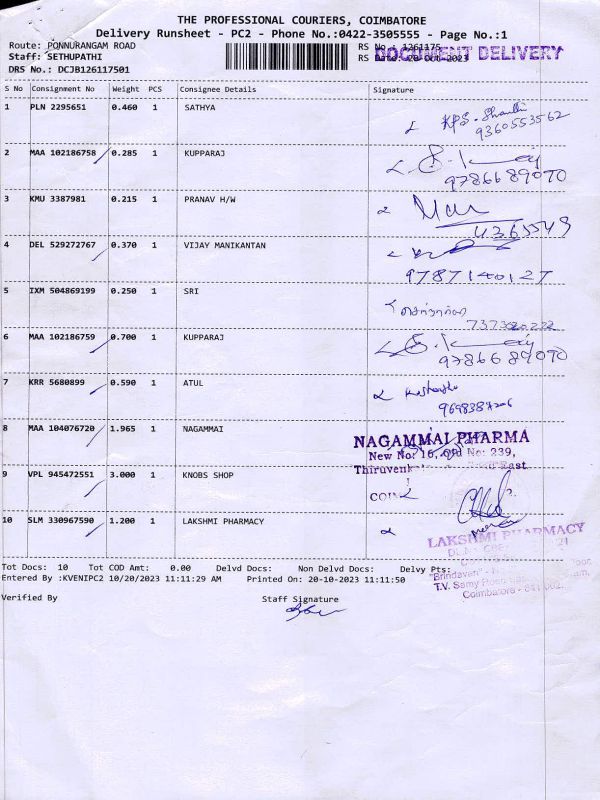 THE PROFESSIONAL COURIERS, COIMBATORE
Delivery Runsheet - PC2 - Phone No.:0422-3505555 - Page No.:1
Route: PONNURANGAM ROAD
RS No.: 1261175
DOCUMENT DELIVERY
Staff: SETHUPATHI
RS Date: 20-Oct-2023
DRS No.: DCJB126117501
S No Consignment No Weight PCS Consignee Details Signature
1 PLN 2295651 0.460 1 SATHYA
KPS. Shanthi
9360553562
2 MAA 102186758 0.285 1 KUPPARAJ
9786689070
3 KMU 3387981 0.215 1 PRANAV H/W
4 DEL 529272767 0.370 1 VIJAY MANIKANTAN
9787140127
5 IXM 504869199 0.250 1 SRI
6 MAA 102186759 0.700 1 KUPPARAJ
9786689070
7 KRR 5680899 0.590 1 ATUL
8 MAA 104076720 1.965 1 NAGAMMAI
NAGAMMAI PHARMA
New No: 16, Old No: 239,
East
9 VPL 945472551 3.000 1 KNOBS SHOP
10 SLM 330967590 1.200 1 LAKSHMI PHARMACY
LAKSHMI PHARMACY
"Brindavan"
T.V. Samy Road
Coimbatore - 641 002.
Tot Docs: 10 Tot COD Amt: 0.00 Delvd Docs: Non Delvd Docs: Delvy Pts:
Entered By :KVENIPC2 10/20/2023 11:11:29 AM Printed On: 20-10-2023 11:11:50
Verified By Staff Signature